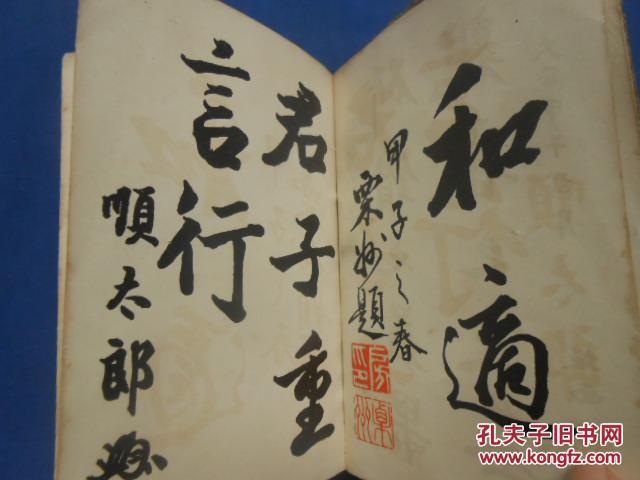 和適
甲子之春
栗州題
君子重
言行
順太郎
孔夫子旧书网
www.kongfz.com